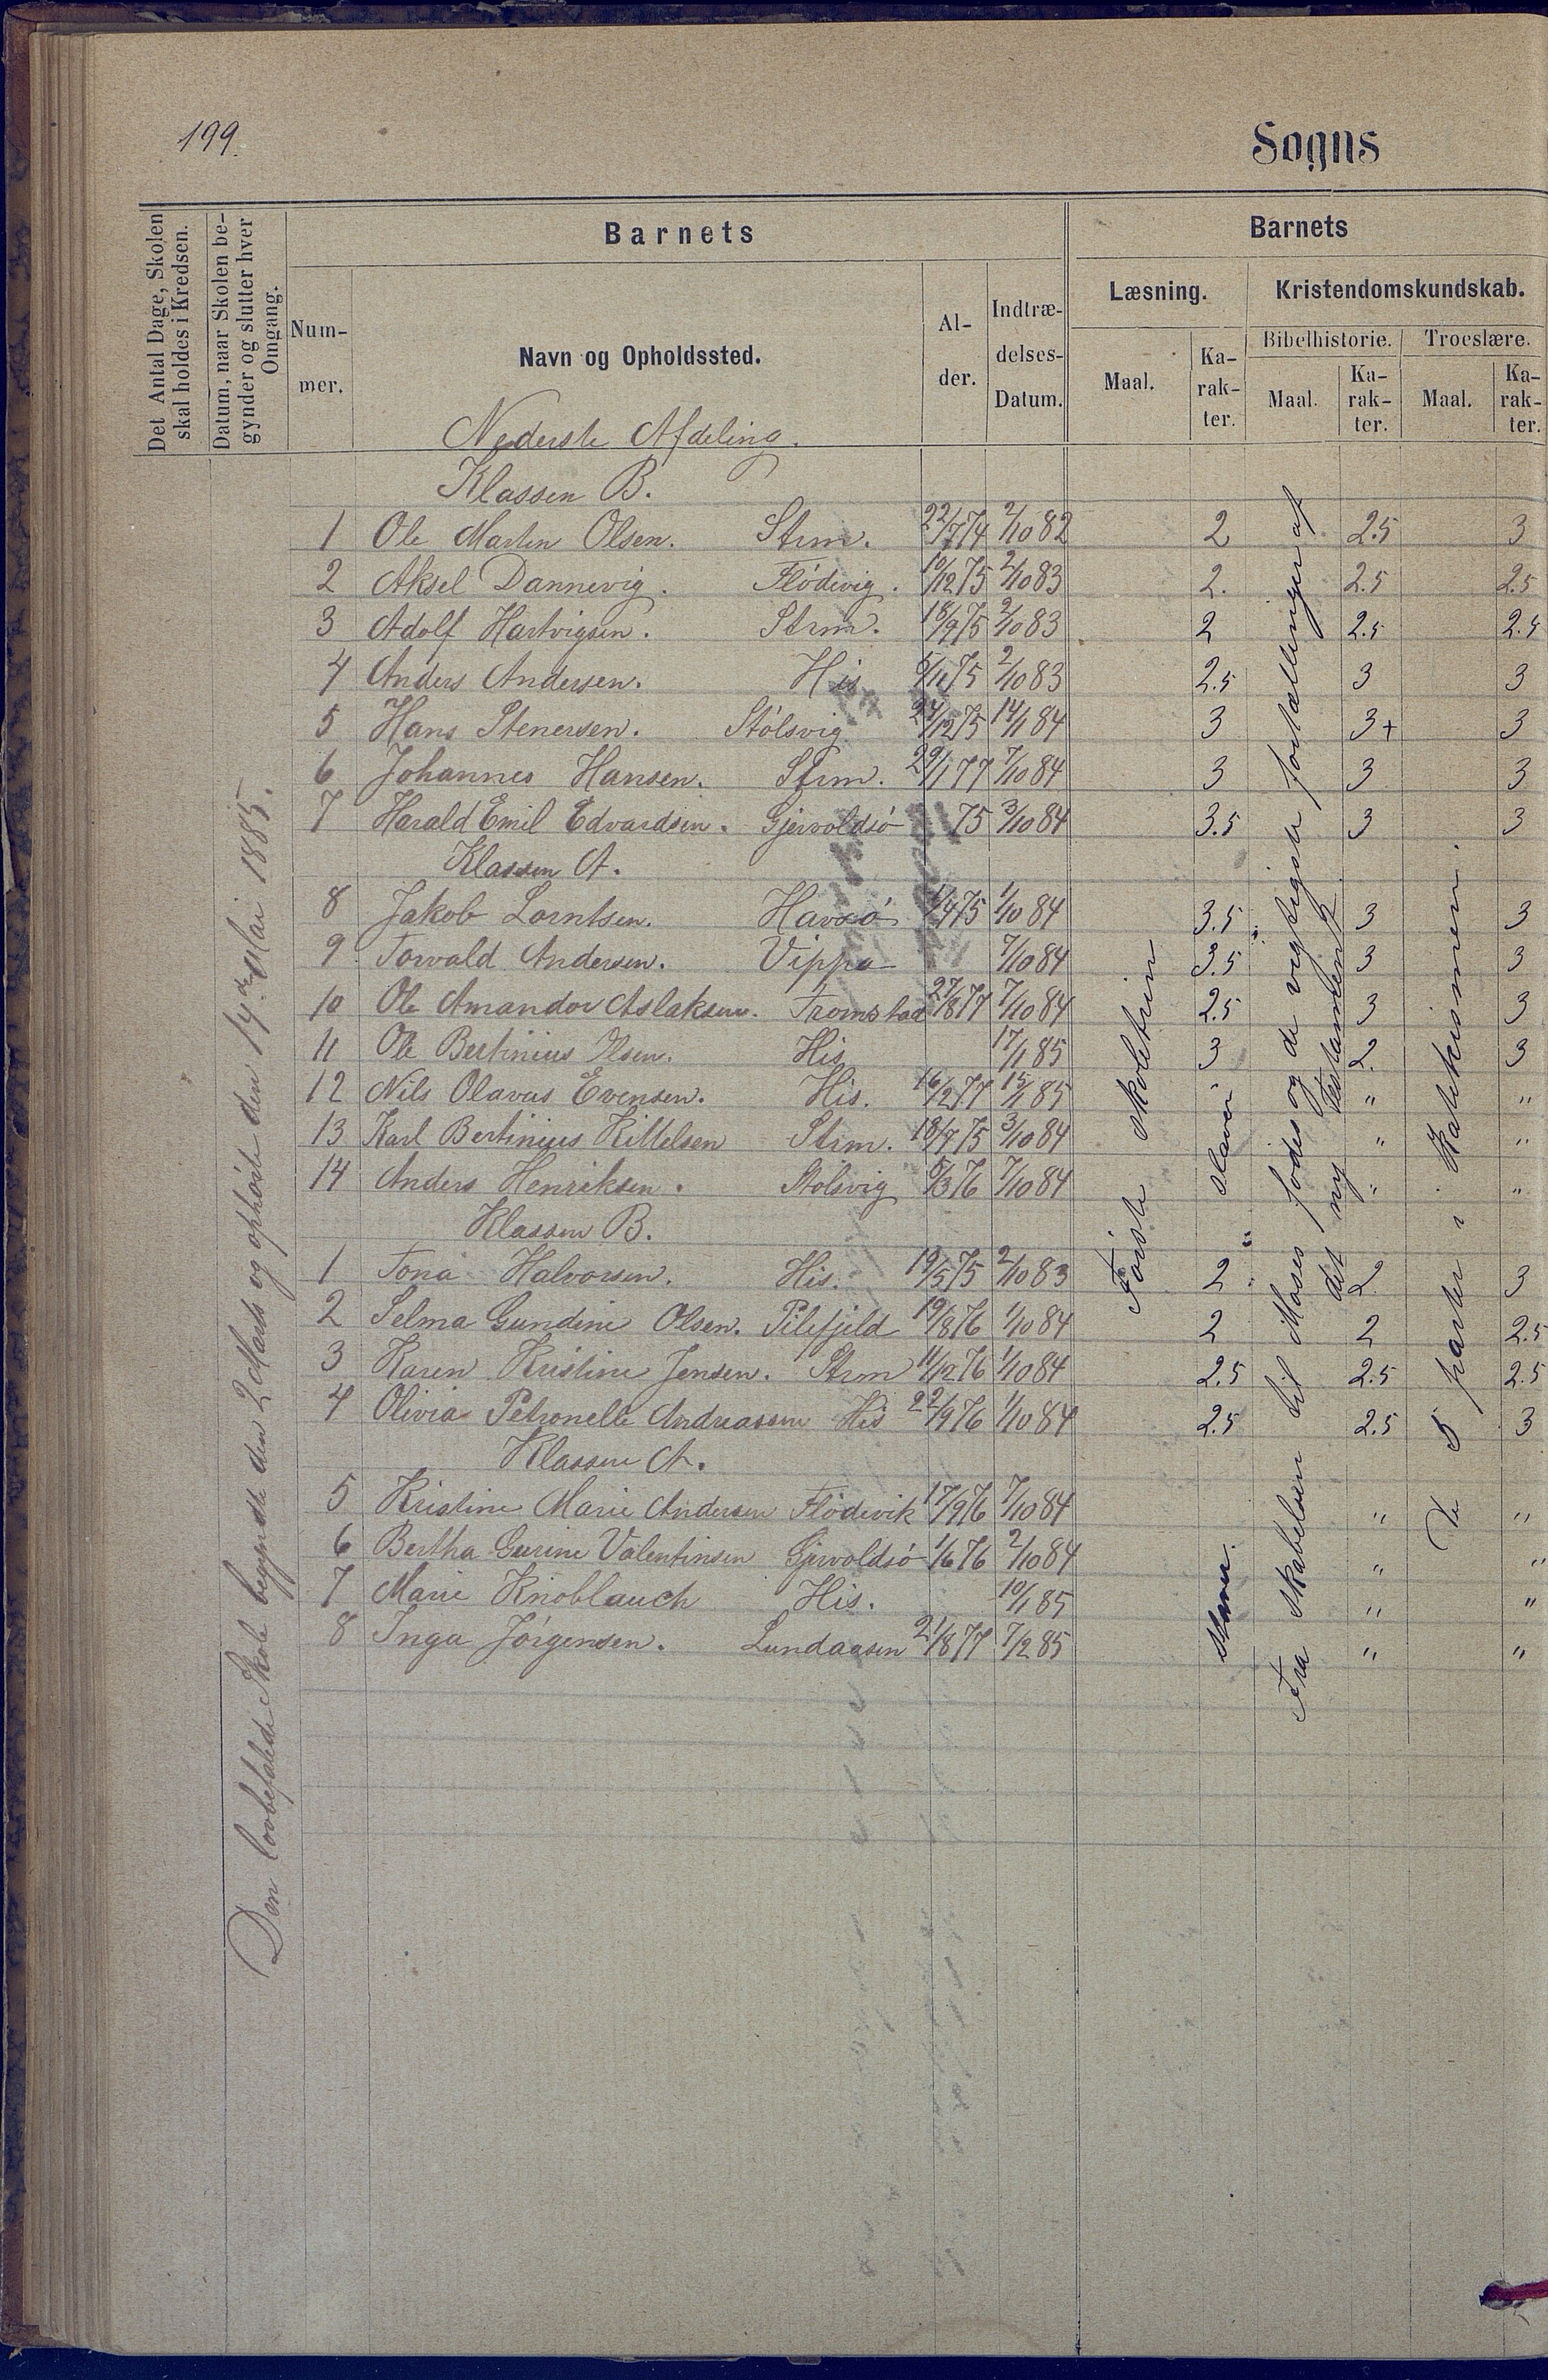 199.
Sogns
Det Antal Dage, Skolen
skal holdes i Kredsen.
Datum, naar Skolen be-
gynder og slutter hver
Omgang.
Barnets
Num-
mer.
Navn og Opholdssted.
Al-
der.
Indtræ-
delses-
Datum.
Barnets
Læsning.
Maal.
Ka-
rak-
ter.
Kristendomskundskab.
Bibelhistorie.
Maal.
Ka-
rak-
ter.
Troeslære.
Maal.
Ka-
rak-
ter.
Nederste Afdeling.
Klassen B.
1 Ole Martin Olsen. Strm. 22/7 74 2/10 82 2 2.5 3
2 Aksel Dannevig. Flödevig. 10/12 75 2/10 83 2. 2.5 2.5
3 Adolf Hartvigsen. Strm. 18/9 75 2/10 83 2 2.5 2.5
4 Anders Andersen. His 5/11 75 2/10 83 2.5 3 3
5 Hans Stenersen. Stölsvig 24/12 75 14/1 84 3 3+ 3
6 Johannes Hansen. Strm. 29/1 77 7/10 84 3 3 3
7 Harald Emil Edvardsen. Gjervoldsö 75 3/10 84 3.5 3 3
Klassen A.
8 Jakob Lorntsen. Havsö 1/4 75 1/10 84 3.5 3 3
9 Torvald Andersen. Vippa 7/10 84 3.5 3 3
10 Ole Amandor Aslaksen. Fromstad 27/8 77 7/10 84 2.5 3 3
11 Ole Bertinius Olsen. His 17/1 85 3 2. 3
12 Nils Olavus Evensen. His. 16/2 77 15/1 85 " "
13 Karl Bertinius Kittelsen Strm. 18/7 75 3/10 84 " "
14 Anders Henriksen. Stölsvig 5/3 76 7/10 84 " "
Klassen B.
1 Tona Halvorsen. His. 19/5 75 2/10 83 2 2. 3
2 Selma Gundine Olsen. Pilefjeld 19/8 76 1/10 84 2 2 2.5
3 Karen Kristine Jensen. Strm 11/12 76 1/10 84 2.5 2.5 2.5
4 Olivia Petronelle Andreassen His 22/9 76 1/10 84 2.5 2.5 3
Klassen A.
5 Kristine Marie Andersen Flödevik 17/9 76 7/10 84 " "
6 Bertha Gurine Valentinsen Gjervoldsö 1/6 76 2/10 84 " "
7 Marie Knoblauch His. 10/1 85 " "
8 Inga Jörgensen. Lundaasen 21/8 77 7/2 85 " "
Den lovbefalede Skole begyndte den 2 Marts og ophörte den 14de Mai 1885.
Förste skoletrin
Staver
Staver.
Fra Skabelsen til Moses födes og de vigtigste fortællinger af
det ny Testamente
De 5 parter i Katekismen.